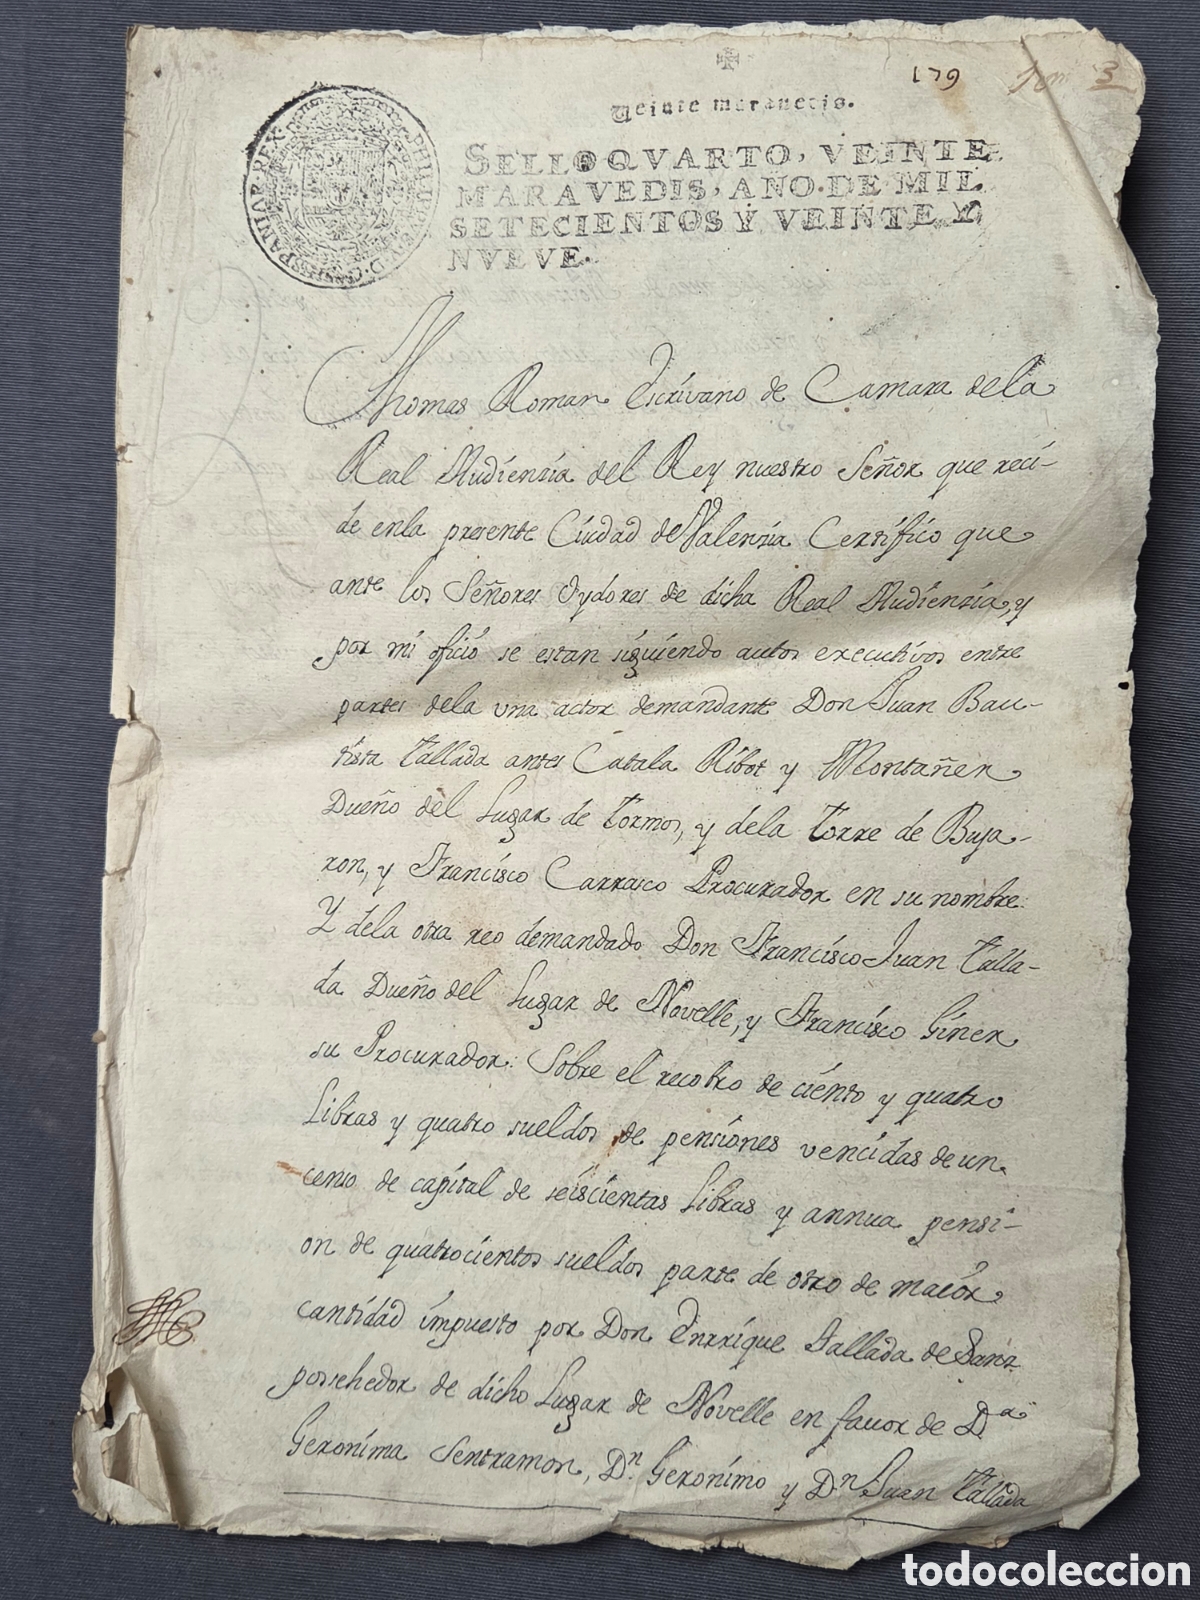 179
3
Veinte maravedis.
SELLO QVARTO, VEINTE
MARAVEDIS, AÑO DE MIL
SETECIENTOS Y VEINTE Y
NVEVE.
PHILIPPVS V D G HISPANIAR REX
Thomas Roman Escrivano de Camara dela
Real Audiensia del Rey nuestro Señor que reci-
de enla presente Ciudad de Valensia Certifico que
ante los Señores Oydores de dicha Real Audiensia, y
por mi oficio se estan siguiendo autos executivos entre
partes dela una actor demandante Don Juan Bau-
tista Tallada antes Catala Ribot y Montañer
Dueño del Lugar de Tormos, y dela Torre de Buja-
ron, y Francisco Carrasco Procurador en su nombre:
Y dela otra reo demandado Don Francisco Juan Talla-
da Dueño del Lugar de Novelle, y Francisco Giner
su Procurador: Sobre el recobro de ciento y quatro
Libras y quatro sueldos de pensiones vencidas de un
censo de capital de seiscientas Libras y annua pensi-
on de quatrocientos sueldos parte de otro de maior
cantidad impuesto por Don Enrrique Tallada de Sanz
possehedor de dicho Lugar de Novelle en favor de D.ª
Geronima Sentramon, D.n Geronimo y D.n Juan Tallada
todocoleccion